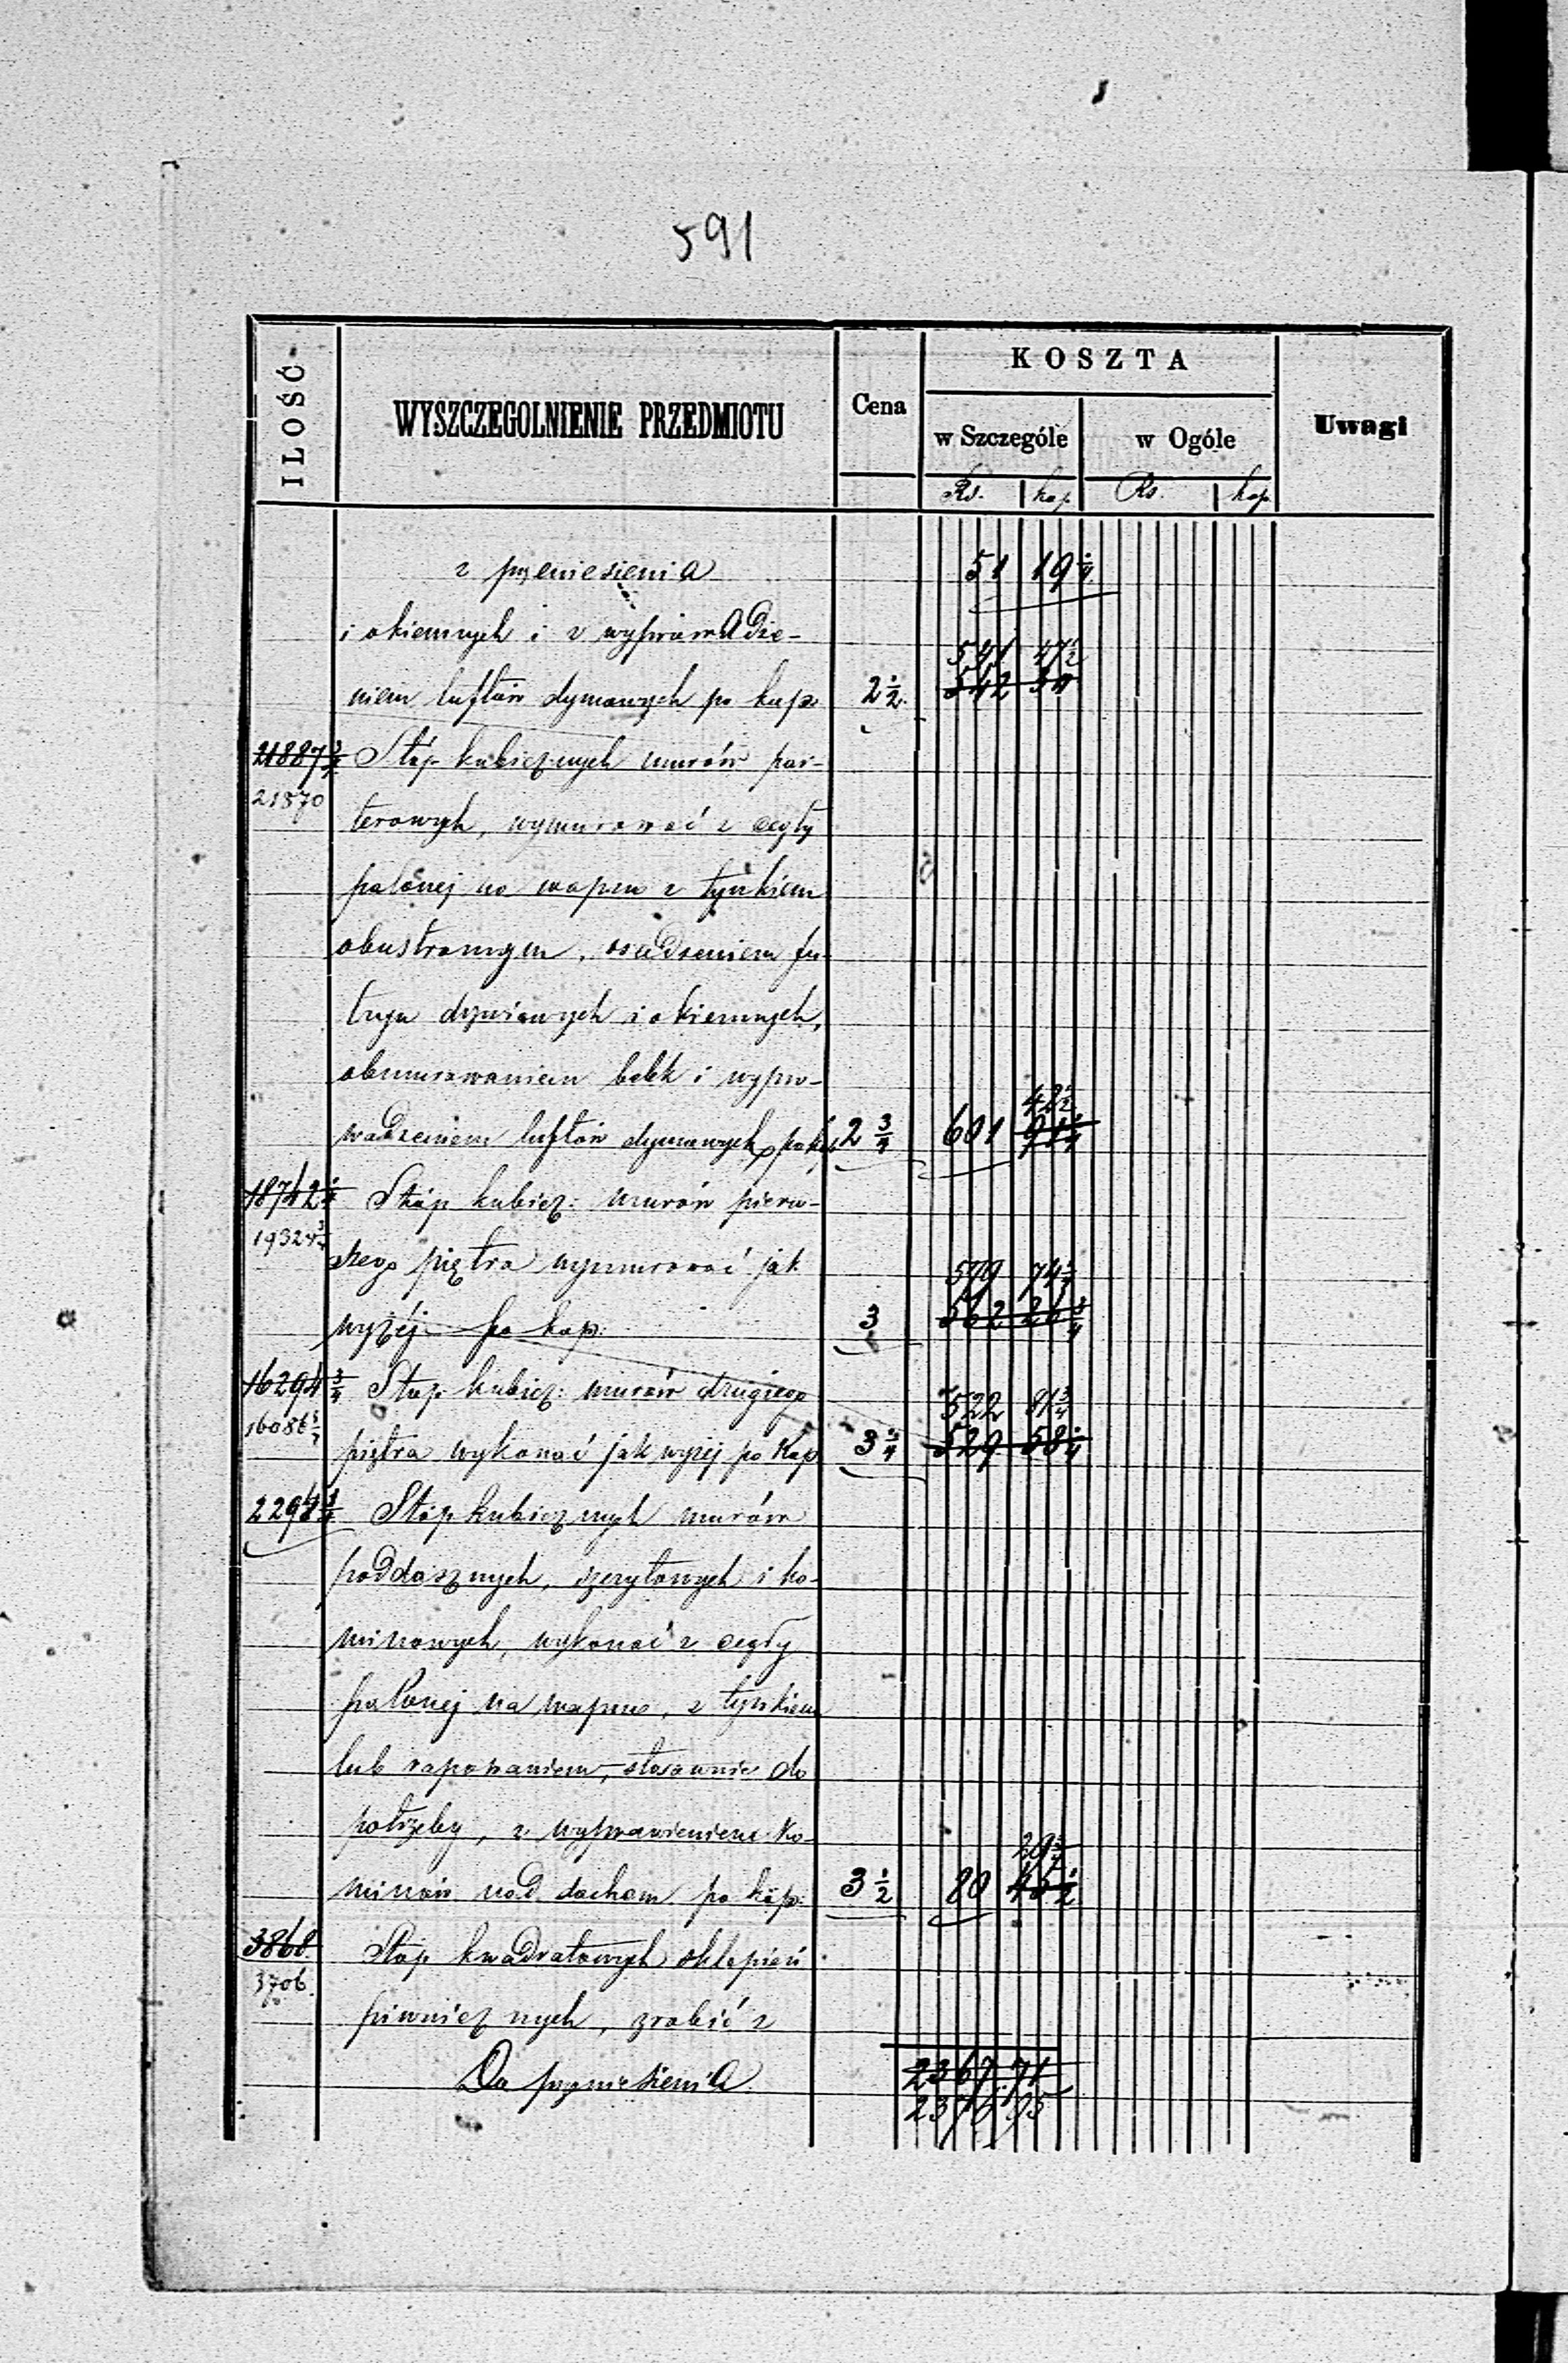 591
ILOŚĆ
WYSZCZEGOLNIENIE PRZEDMIOTU
Cena
KOSZTA
w Szczególe
w Ogóle
Uwagi
Rs. kop. Rs. kop.
z przeniesienia 51 19 1/4
i okiennych i z wyprowadze-
541 47 1/2
niem luftów dymowych po kop. 2 1/2 542 34
21887 3/4 Stóp kubicznych murów par-
21870
terowych, wymurować z cegły
palonej na wapno z tynkiem
obustronnym, osadzeniem fu-
tryn drzwiowych i okiennych,
obmurowaniem belek i wypro-
42 1/2
wadzeniem luftów dymowych po kop 2 3/4 601
18742 1/4 Stóp kubicz: murów pierw-
19324 3/4
szego piętra wymurować jak
599 74 1/4
wyżéj po kop. 3 562 26 3/4
16294 3/4 Stóp kubicz: murów drugiego
522 81 3/4
16086
piętra wykonać jak wyżej po Kop 3 1/4 529 58 1/4
2294 Stóp kubicznych murów
poddasznych, szczytowych i ko-
minowych, wykonać z cegły
palonej na wapno, z tynkiem
lub rapowaniem, stosownie do
potrzeby, z wyprawieniem Ko-
29 3/4
minów nad dachem po kop: 3 1/2 80
3868 Stóp kwadratowych sklepień
3706.
piwnicznych, zrobić z
Do przeniesienia 2367 71
2376 95